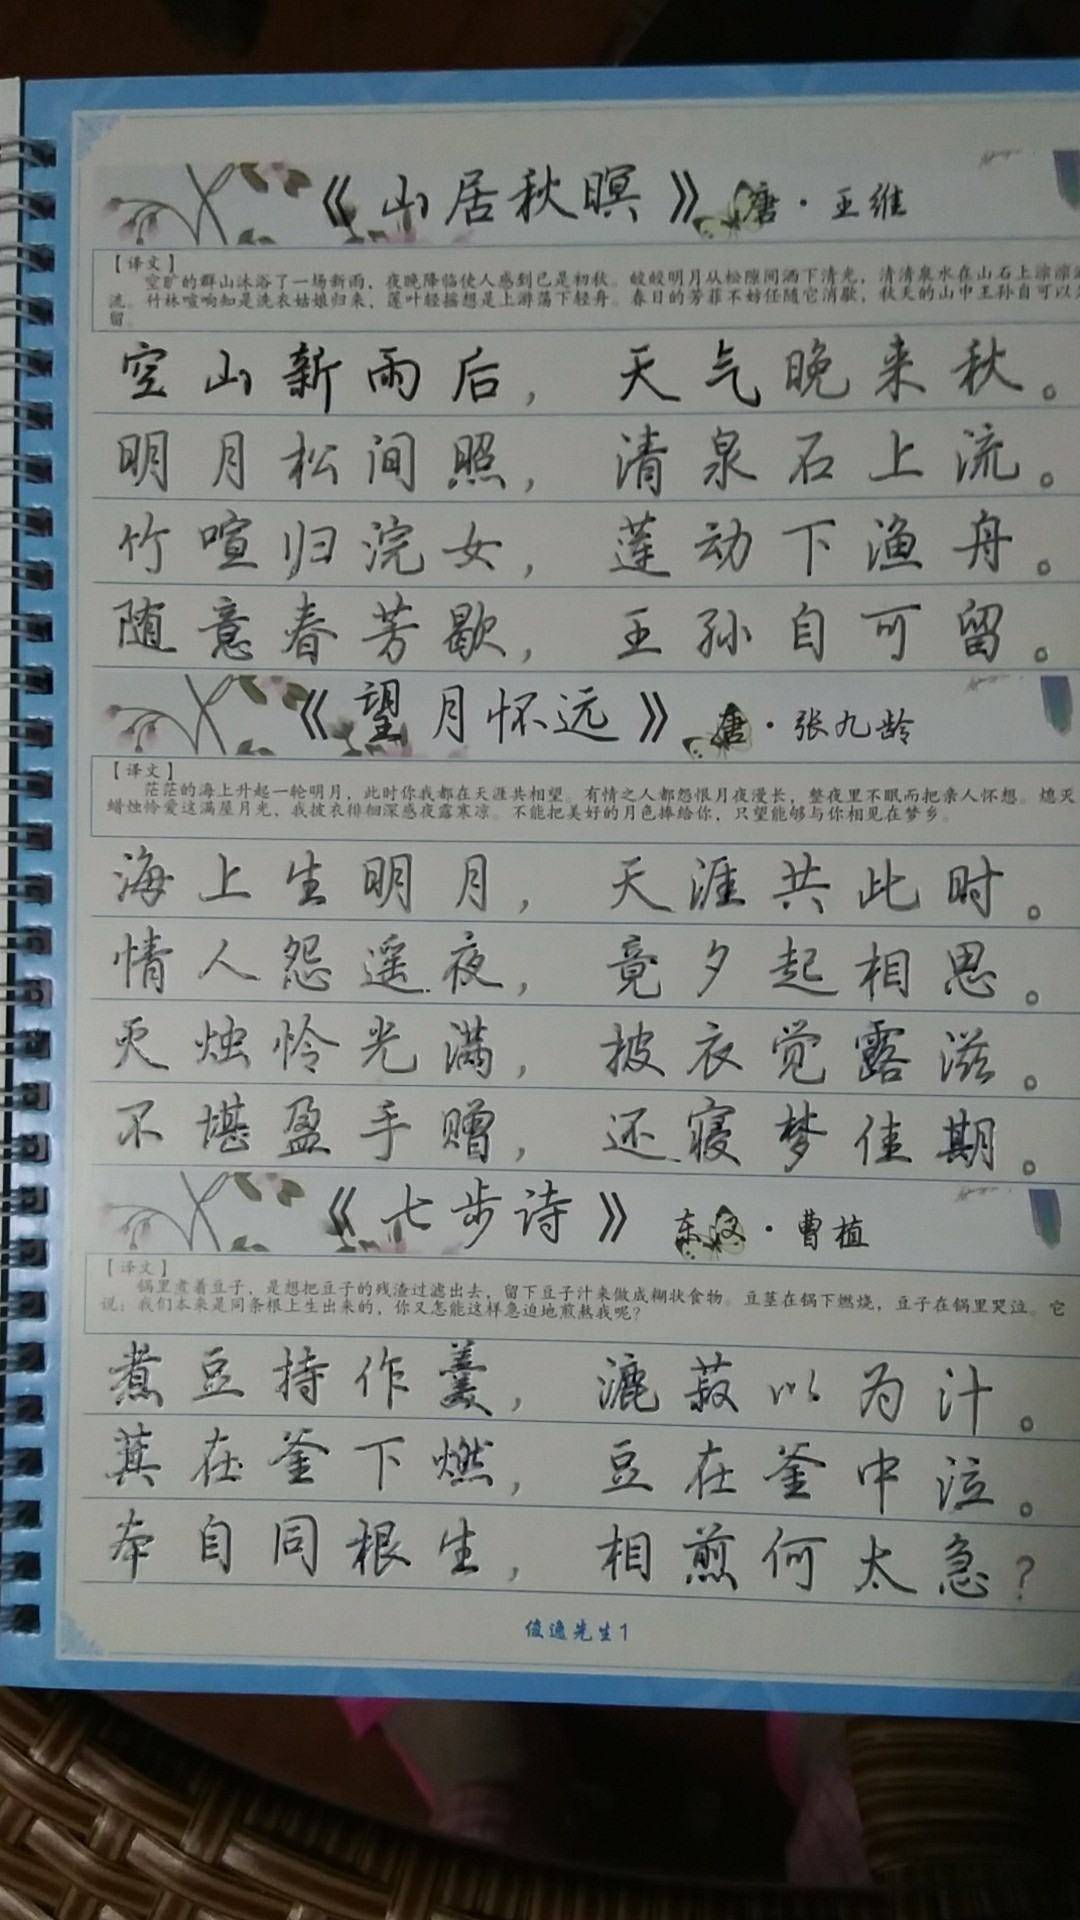 《山居秋暝》 唐·王维
【译文】
空旷的群山沐浴了一场新雨，夜晚降临使人感到已是初秋。皎皎明月从松隙间洒下清光，清清泉水在山石上淙淙
流。竹林喧响知是洗衣姑娘归来，莲叶轻摇想是上游荡下轻舟。春日的芳菲不妨任随它消歇，秋天的山中王孙自可以
留。
空山新雨后，天气晚来秋。
明月松间照，清泉石上流。
竹喧归浣女，莲动下渔舟。
随意春芳歇，王孙自可留。
《望月怀远》 唐·张九龄
【译文】
茫茫的海上升起一轮明月，此时你我都在天涯共相望。有情之人都怨恨月夜漫长，整夜里不眠而把亲人怀想。熄灭
蜡烛怜爱这满屋月光，我披衣徘徊深感夜露寒凉。不能把美好的月色捧给你，只望能够与你相见在梦乡。
海上生明月，天涯共此时。
情人怨遥夜，竟夕起相思。
灭烛怜光满，披衣觉露滋。
不堪盈手赠，还寝梦佳期。
《七步诗》 东汉·曹植
【译文】
锅里煮着豆子，是想把豆子的残渣过滤出去，留下豆子汁来做成糊状食物。豆茎在锅下燃烧，豆子在锅里哭泣。它
说：我们本来是同条根上生出来的，你又怎能这样急迫地煎熬我呢？
煮豆持作羹，漉菽以为汁。
萁在釜下燃，豆在釜中泣。
本自同根生，相煎何太急？
俊逸先生1